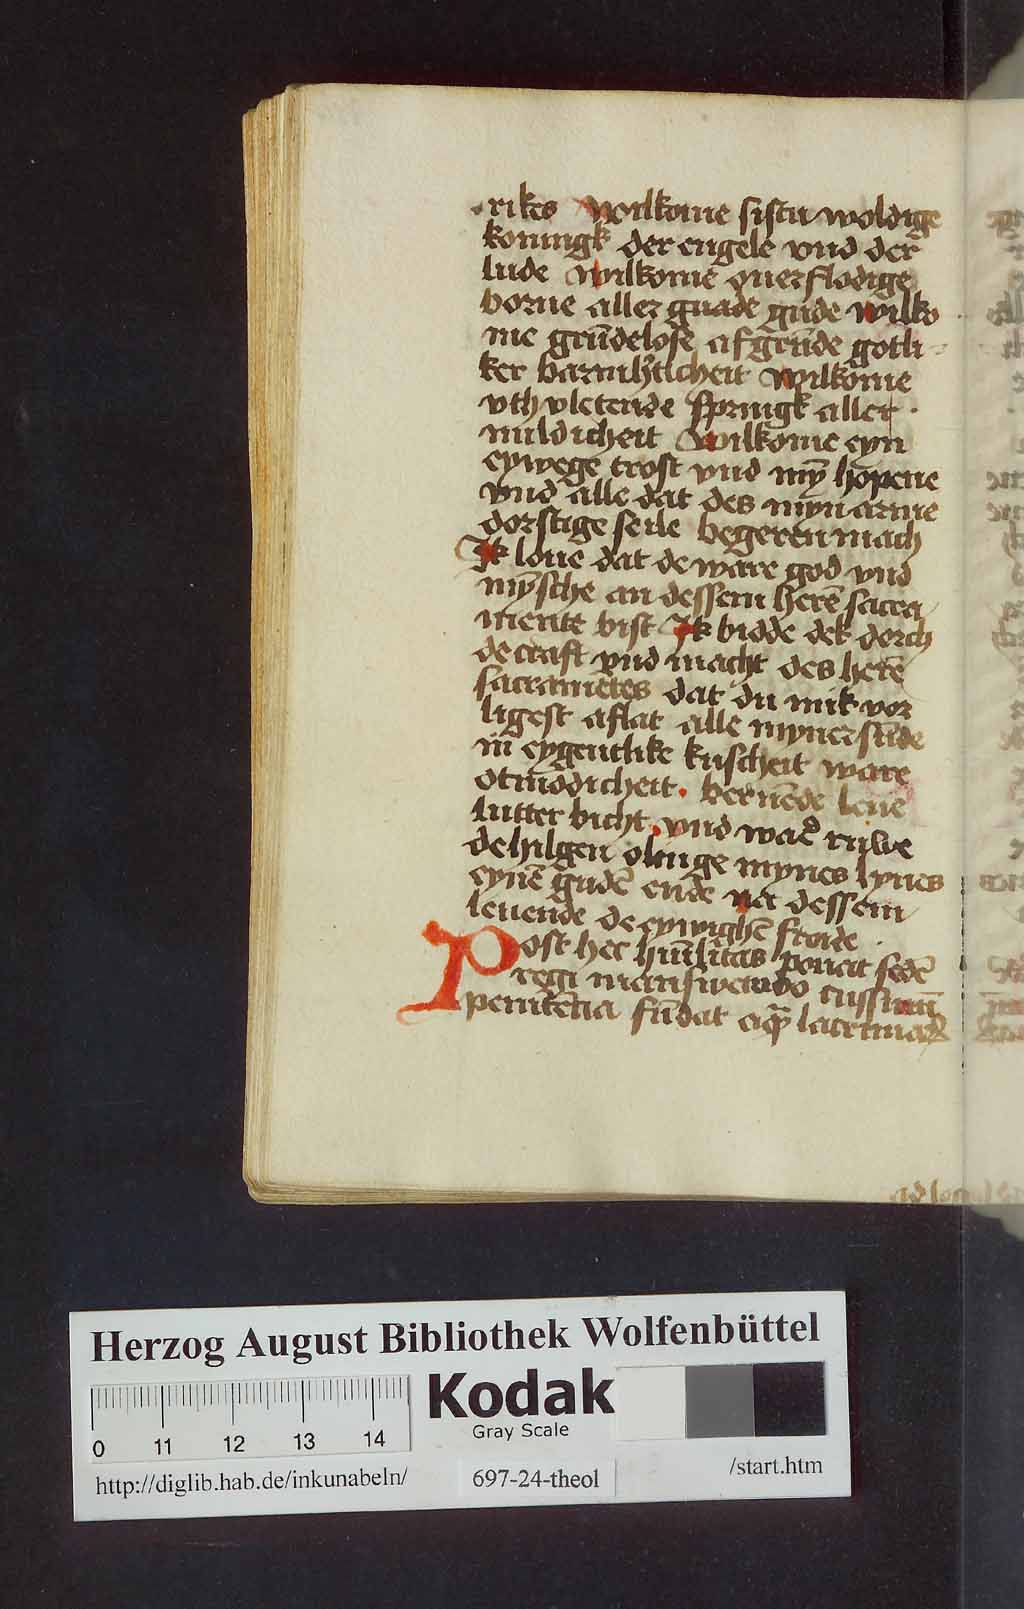 rikes Wilkome sistu woldige
koningk der engele vnd der
lude Wilkome ouerflodige
borne aller gnade gude wilko
me grūdelose afgrūde gotli
ker barmh'tlcheit Wilkome
vth vletende springk aller
mildicheit Wilkome eyn
eywege trost vnd mȳ hopene
vnd alle dat des myn arme
dorstige seile begeren mach
Ik loue dat de ware god vnd
mȳsche an dessem herē sacra
mente bist Ik bidde dek dorch
de craft vnd macht des herē
sacrametes dat du mik vor
ligest aflat alle myner sūde
in eygentlike kuscheit ware
otmodicheit . bernēde leue
lutter bicht . vnd war ruwe
de hilgen olinge mynes lyues
eynē gudē ende na dessem
leuende de eywighē frode
Post hec hūilitas ponat sedē
regi mansweudo cussinū
penitētia fūdat aqȝ lacrimaꝝ
Herzog August Bibliothek Wolfenbüttel
0 11 12 13 14
Kodak
Gray Scale
http://diglib.hab.de/inkunabeln/
697-24-theol
/start.htm